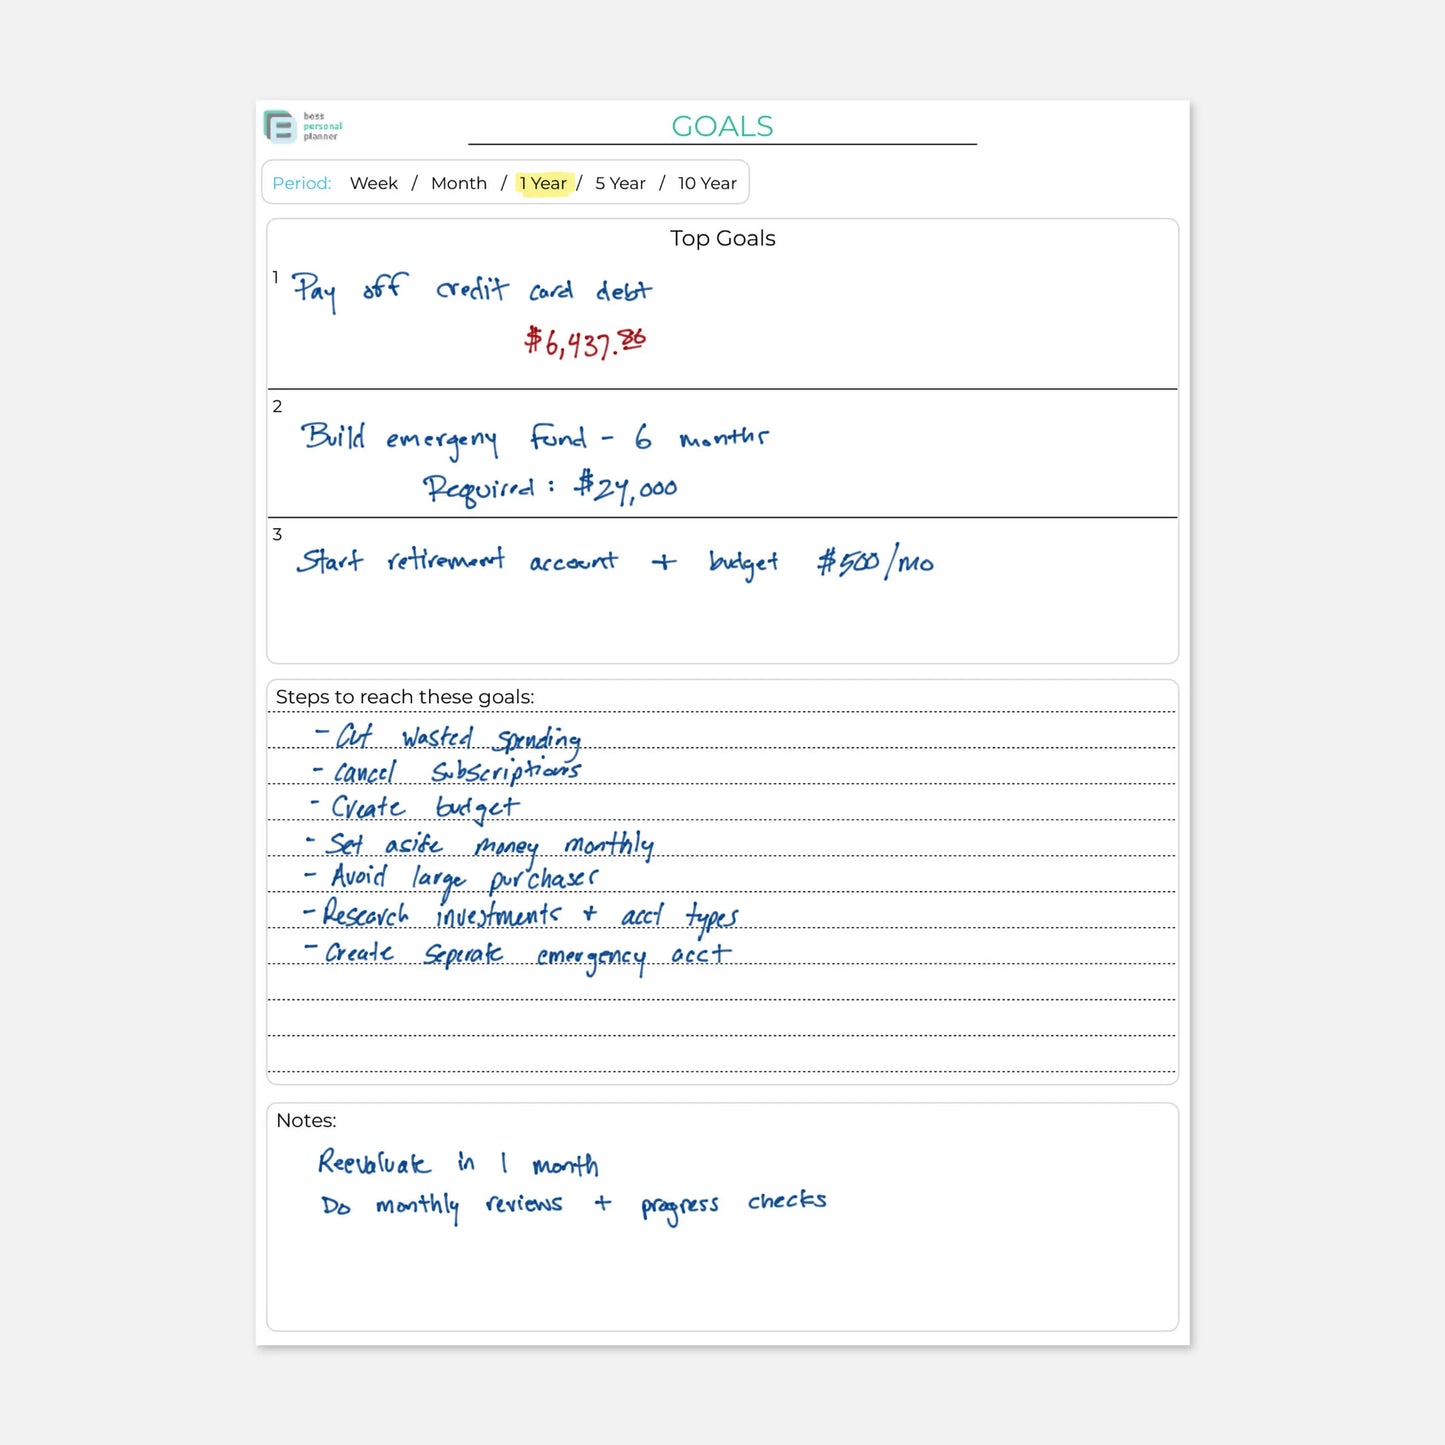 bess
personal
planner
GOALS
Period: Week / Month / 1 Year / 5 Year / 10 Year
Top Goals
1 Pay off credit card debt
$6,437.86
2
Build emergeny fund - 6 months
Required: $24,000
3
Start retirement account + budget $500/mo
Steps to reach these goals:
- Cut wasted spending
- Cancel subscriptions
- Create budget
- Set aside money monthly
- Avoid large purchases
- Research investments + acct types
- Create seperate emergency acct
Notes:
Reevaluate in 1 month
Do monthly reviews + progress checks